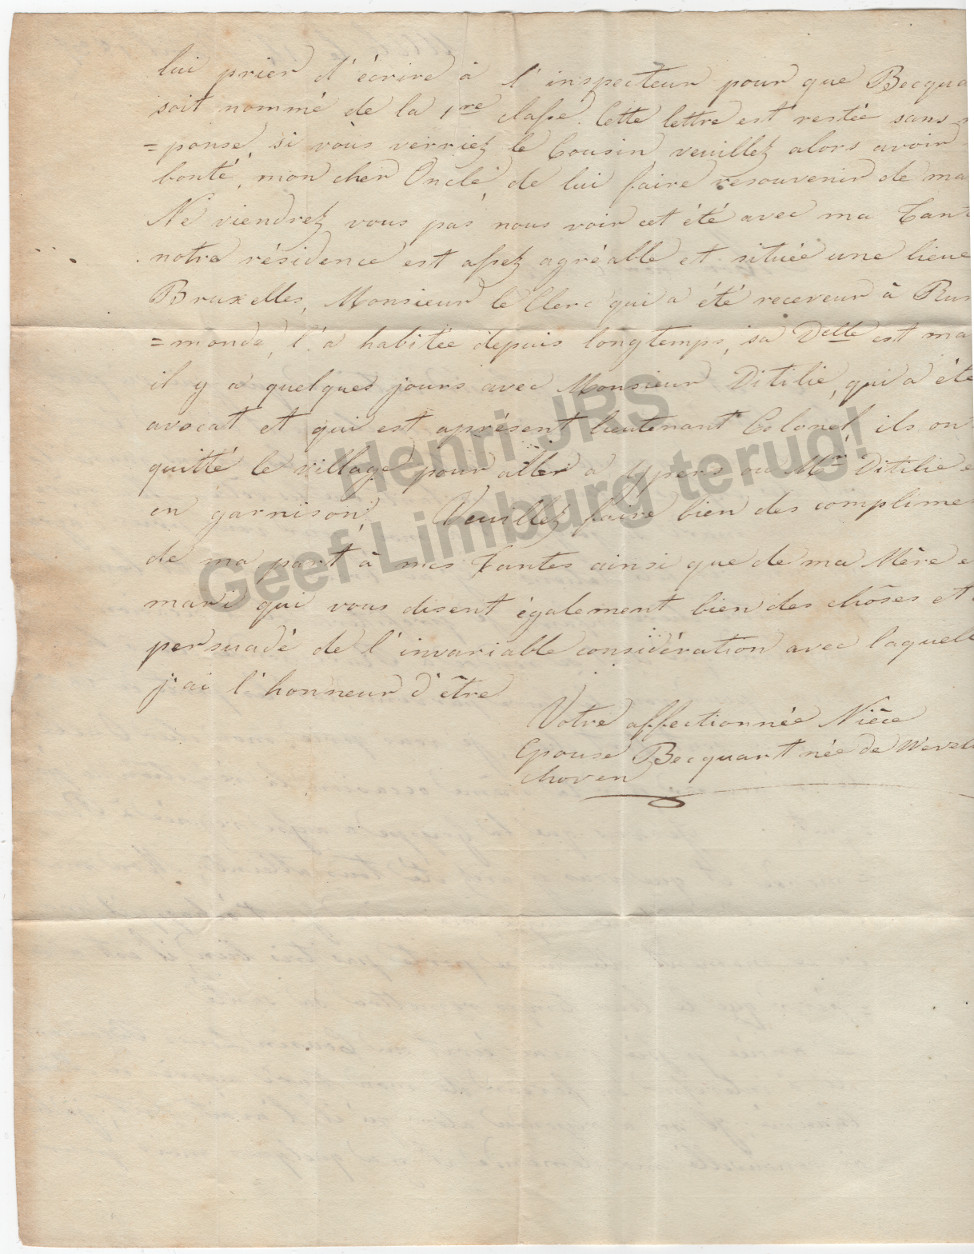 lui prier d'écrire à l'inspecteur pour que Becqua
soit nommé de la 1re classe. Cette lettre est restée sans
=ponse, si vous verriez le Cousin veuillez alors avoir
bonté, mon cher Oncle, de lui faire resouvenir de ma
Ne viendrez vous pas nous voir cet été avec ma Tant
notre résidence est assez agréable et située une lieue
Bruxelles, Monsieur le Clerc qui a été receveur à Rur
=monde, l'a habitée depuis longtemps, sa Delle est ma
il y a quelques jours avec Monsieur Ditilie, qui a été
avocat et qui est aprésent lieutenant Colonel, ils on
quitté le village pour aller à Ypers ou Mr Ditilie e
en garnison. Veuillez faire bien des complime
de ma part à mes Tantes ainsi que de ma Mère e
mari qui vous disent également bien des choses et
persuadé de l'invariable considération avec laquell
j'ai l'honneur d'être
Votre affectionnée Nièce
Epouse Becquart née de Wevel
choven
Henri JRS
Geef Limburg terug!